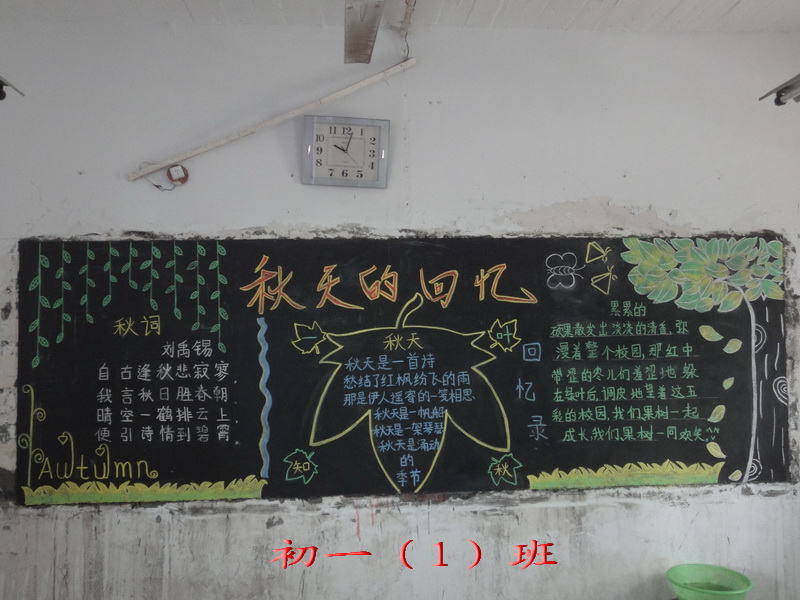 秋天的回忆
秋词
刘禹锡
自古逢秋悲寂寥,
我言秋日胜春朝
晴空一鹤排云上
便引诗情到碧霄
Autumn
秋天
秋天是一首诗
愁结了红枫纷飞的雨
那是伊人遥寄的一笺相思
秋天是一帆船
秋天是一架琴瑟
秋天是涌动
的
季节
一
叶
知
秋
回
忆
录
累累的
硕果散发出淡淡的清香,弥
漫着整个校园,那红中
带涩的枣儿们羞涩地躲
在绿叶后,调皮地望着这五
彩的校园,我们果树一起
成长,我们果树一同欢笑
初一（1）班
11 12 1
10 2
9 3
8 4
7 6 5